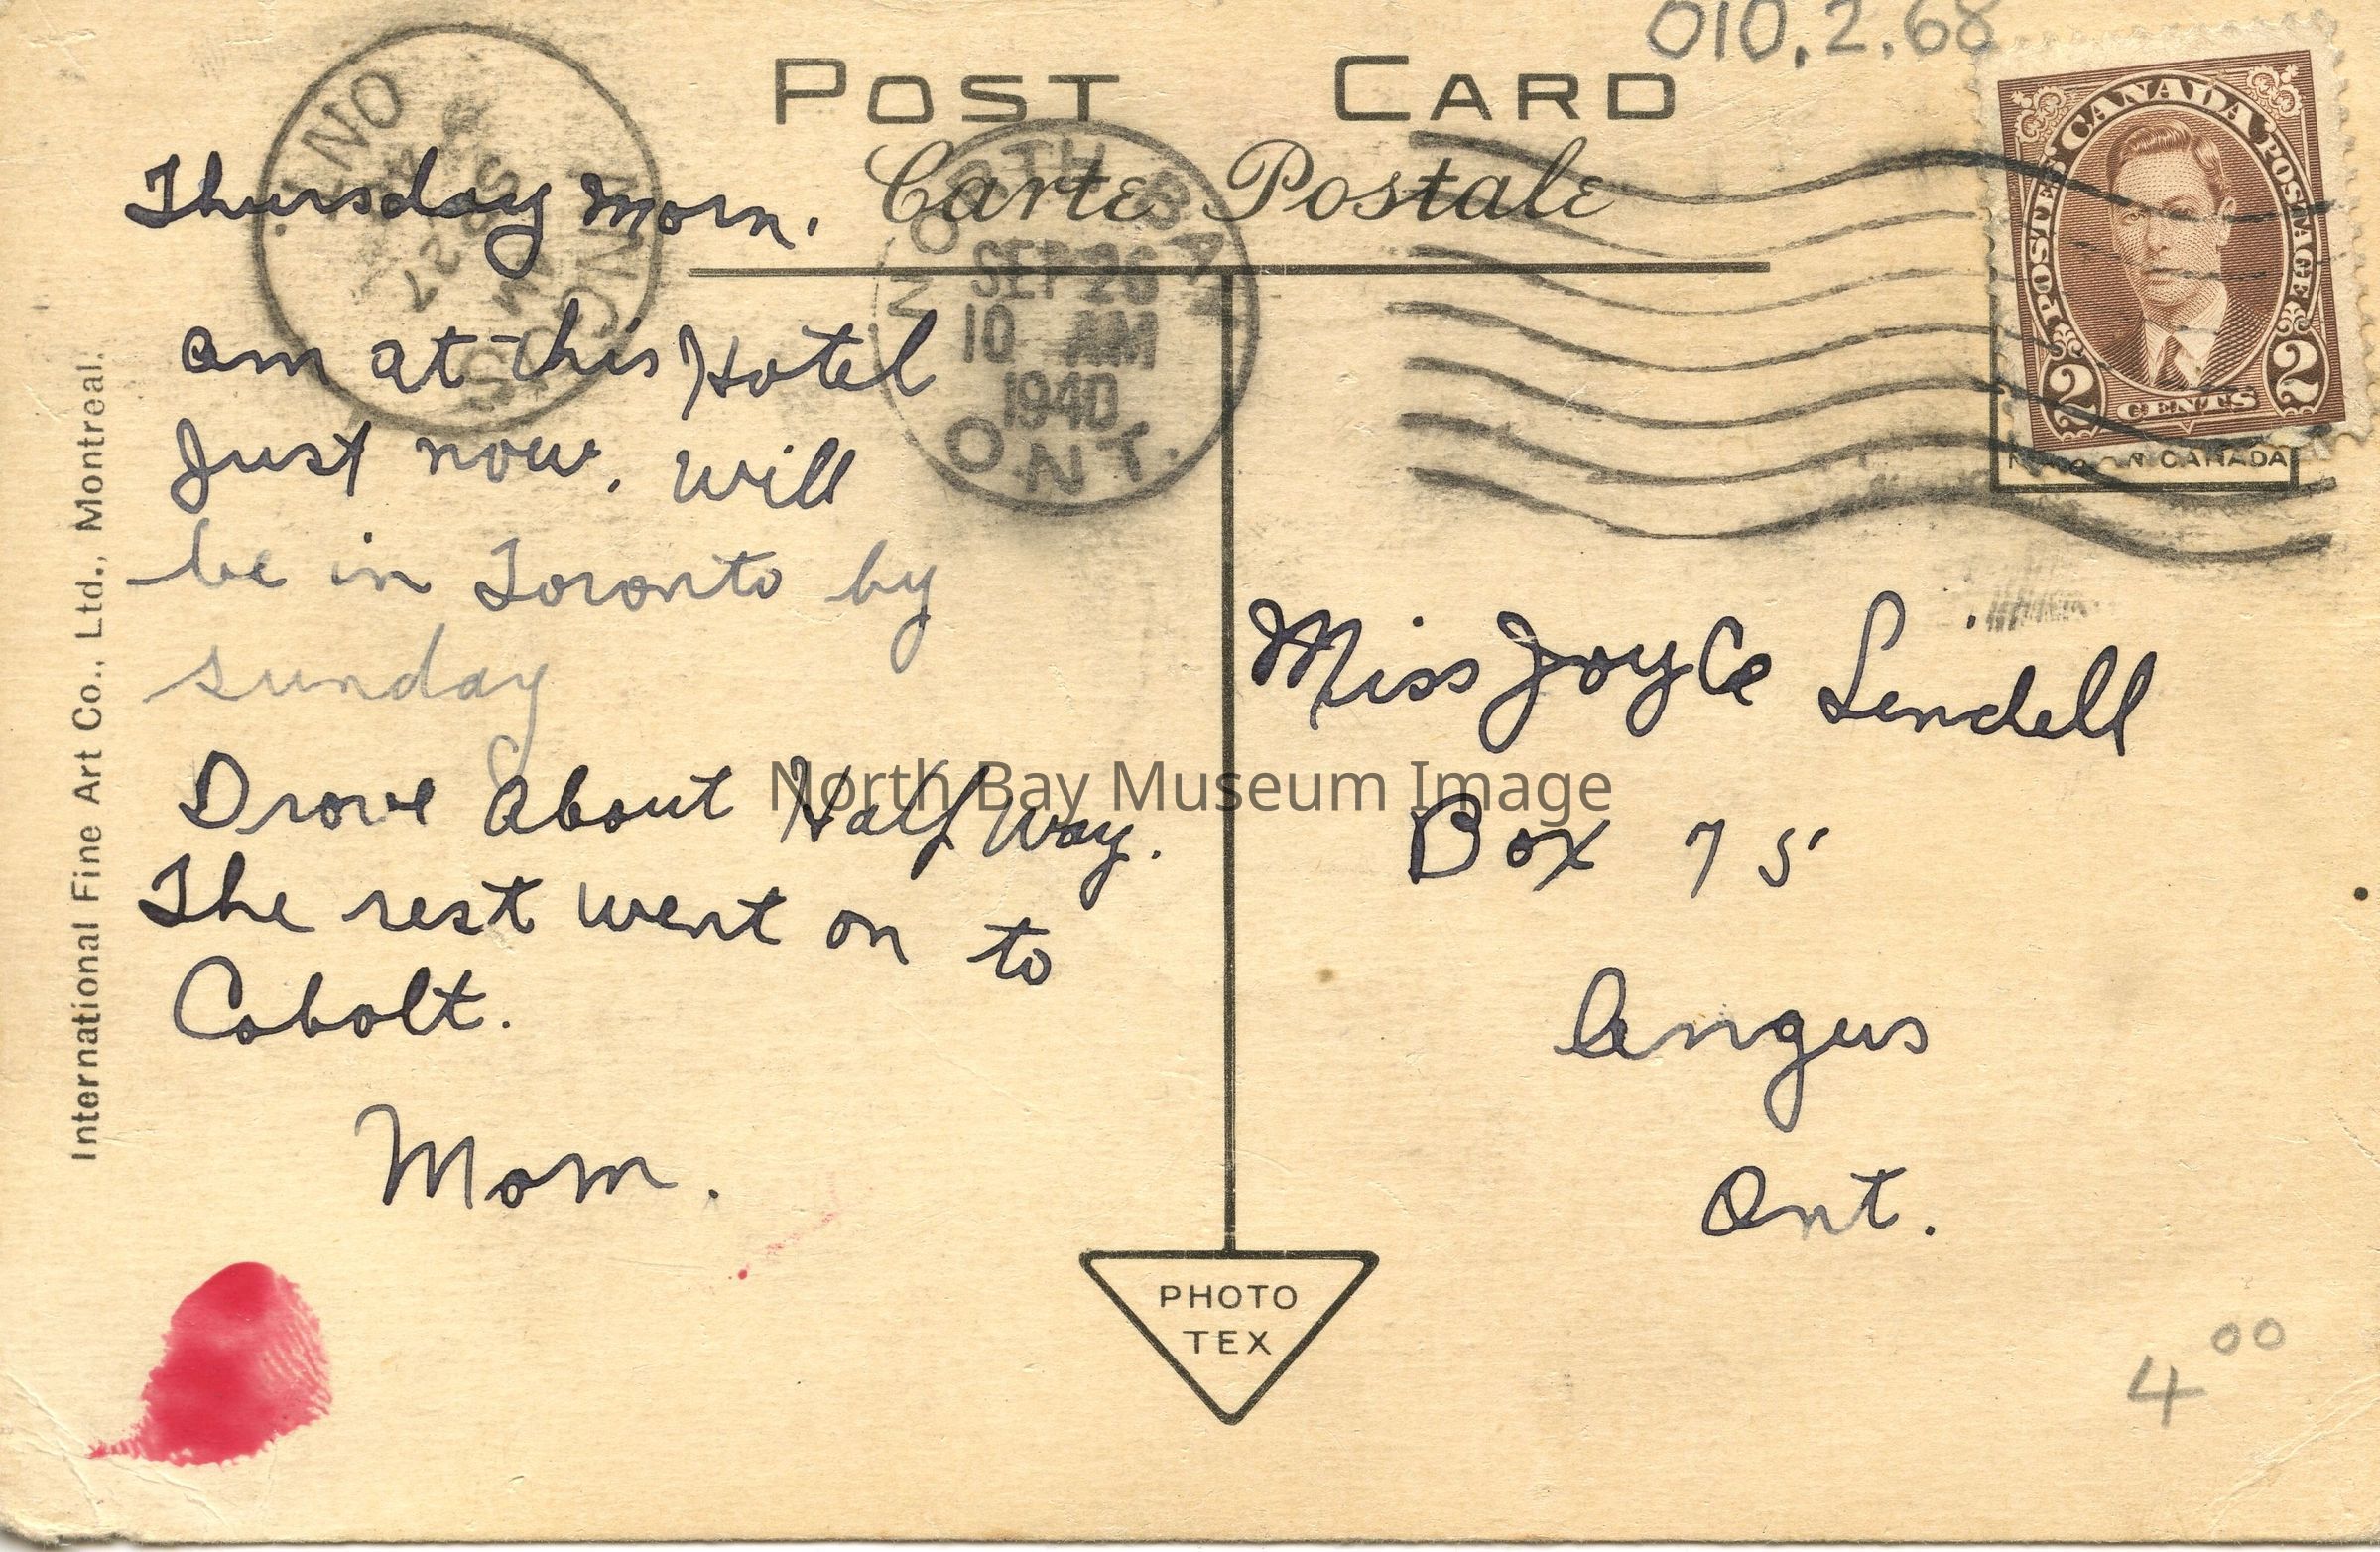 010.2.68
POST CARD
Carte Postale
NORTH BAY
SEP 26
10 AM
1940
ONT.
POSTES CANADA POSTAGE
2 CENTS 2
CANADA
Thursday morn.
am at this Hotel
Just now. Will
be in Toronto by
sunday
Drove About Half Way.
The rest went on to
Cobolt.
Mom.
Miss Joyce Lindell
Box 75
Angus
Ont.
North Bay Museum Image
International Fine Art Co., Ltd., Montreal.
PHOTO
TEX
4 00